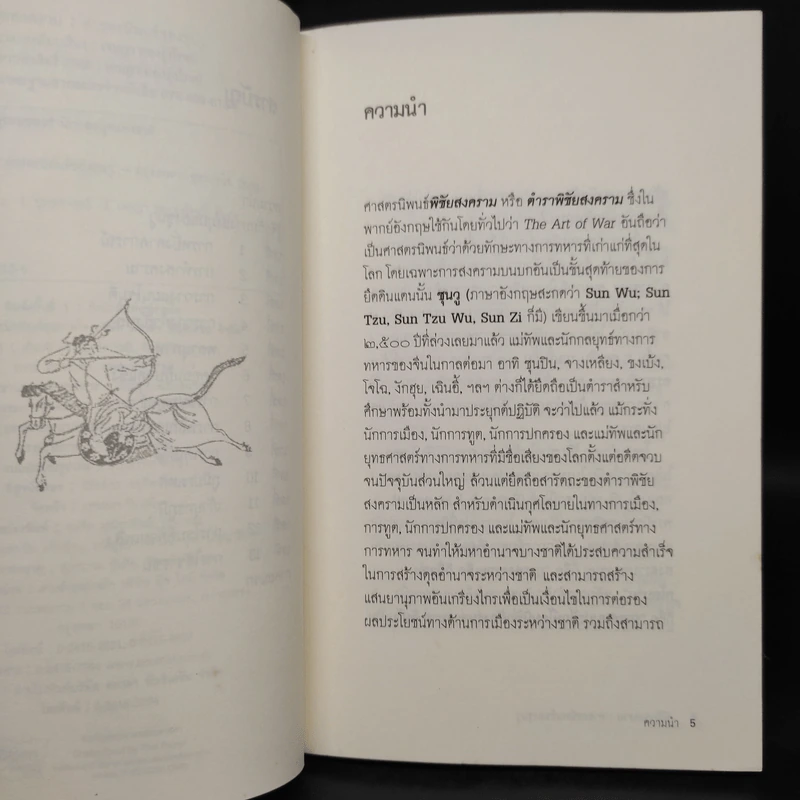 ความนำ
ศาสตรนิพนธ์พิชัยสงคราม หรือ ตำราพิชัยสงคราม ซึ่งใน
พากย์อังกฤษใช้กันโดยทั่วไปว่า The Art of War อันถือว่า
เป็นศาสตรนิพนธ์ว่าด้วยทักษะทางการทหารที่เก่าแก่ที่สุดใน
โลก โดยเฉพาะการสงครามบนบกอันเป็นขั้นสุดท้ายของการ
ยึดดินแดนนั้น ซุนวู (ภาษาอังกฤษสะกดว่า Sun Wu; Sun
Tzu, Sun Tzu Wu, Sun Zi ก็มี) เขียนขึ้นมาเมื่อกว่า
๒,๕๐๐ ปีที่ล่วงเลยมาแล้ว แม่ทัพและนักกลยุทธ์ทางการ
ทหารของจีนในกาลต่อมา อาทิ ซุนปิน, จางเหลียง, ขงเบ้ง,
โจโฉ, งักฮุย, เฉินอี้, ฯลฯ ต่างก็ได้ยึดถือเป็นตำราสำหรับ
ศึกษาพร้อมทั้งนำมาประยุกต์ปฏิบัติ จะว่าไปแล้ว แม้กระทั่ง
นักการเมือง, นักการทูต, นักการปกครอง และแม่ทัพและนัก
ยุทธศาสตร์ทางการทหารที่มีชื่อเสียงของโลกตั้งแต่อดีตจวบ
จนปัจจุบันส่วนใหญ่ ล้วนแต่ยึดถือสารัตถะของตำราพิชัย
สงครามเป็นหลัก สำหรับดำเนินกุศโลบายในทางการเมือง,
การทูต, นักการปกครอง และแม่ทัพและนักยุทธศาสตร์ทาง
การทหาร จนทำให้มหาอำนาจบางชาติได้ประสบความสำเร็จ
ในการสร้างดุลอำนาจระหว่างชาติ และสามารถสร้าง
แสนยานุภาพอันเกรียงไกรเพื่อเป็นเงื่อนไขในการต่อรอง
ผลประโยชน์ทางด้านการเมืองระหว่างชาติ รวมถึงสามารถ
ความนำ 5